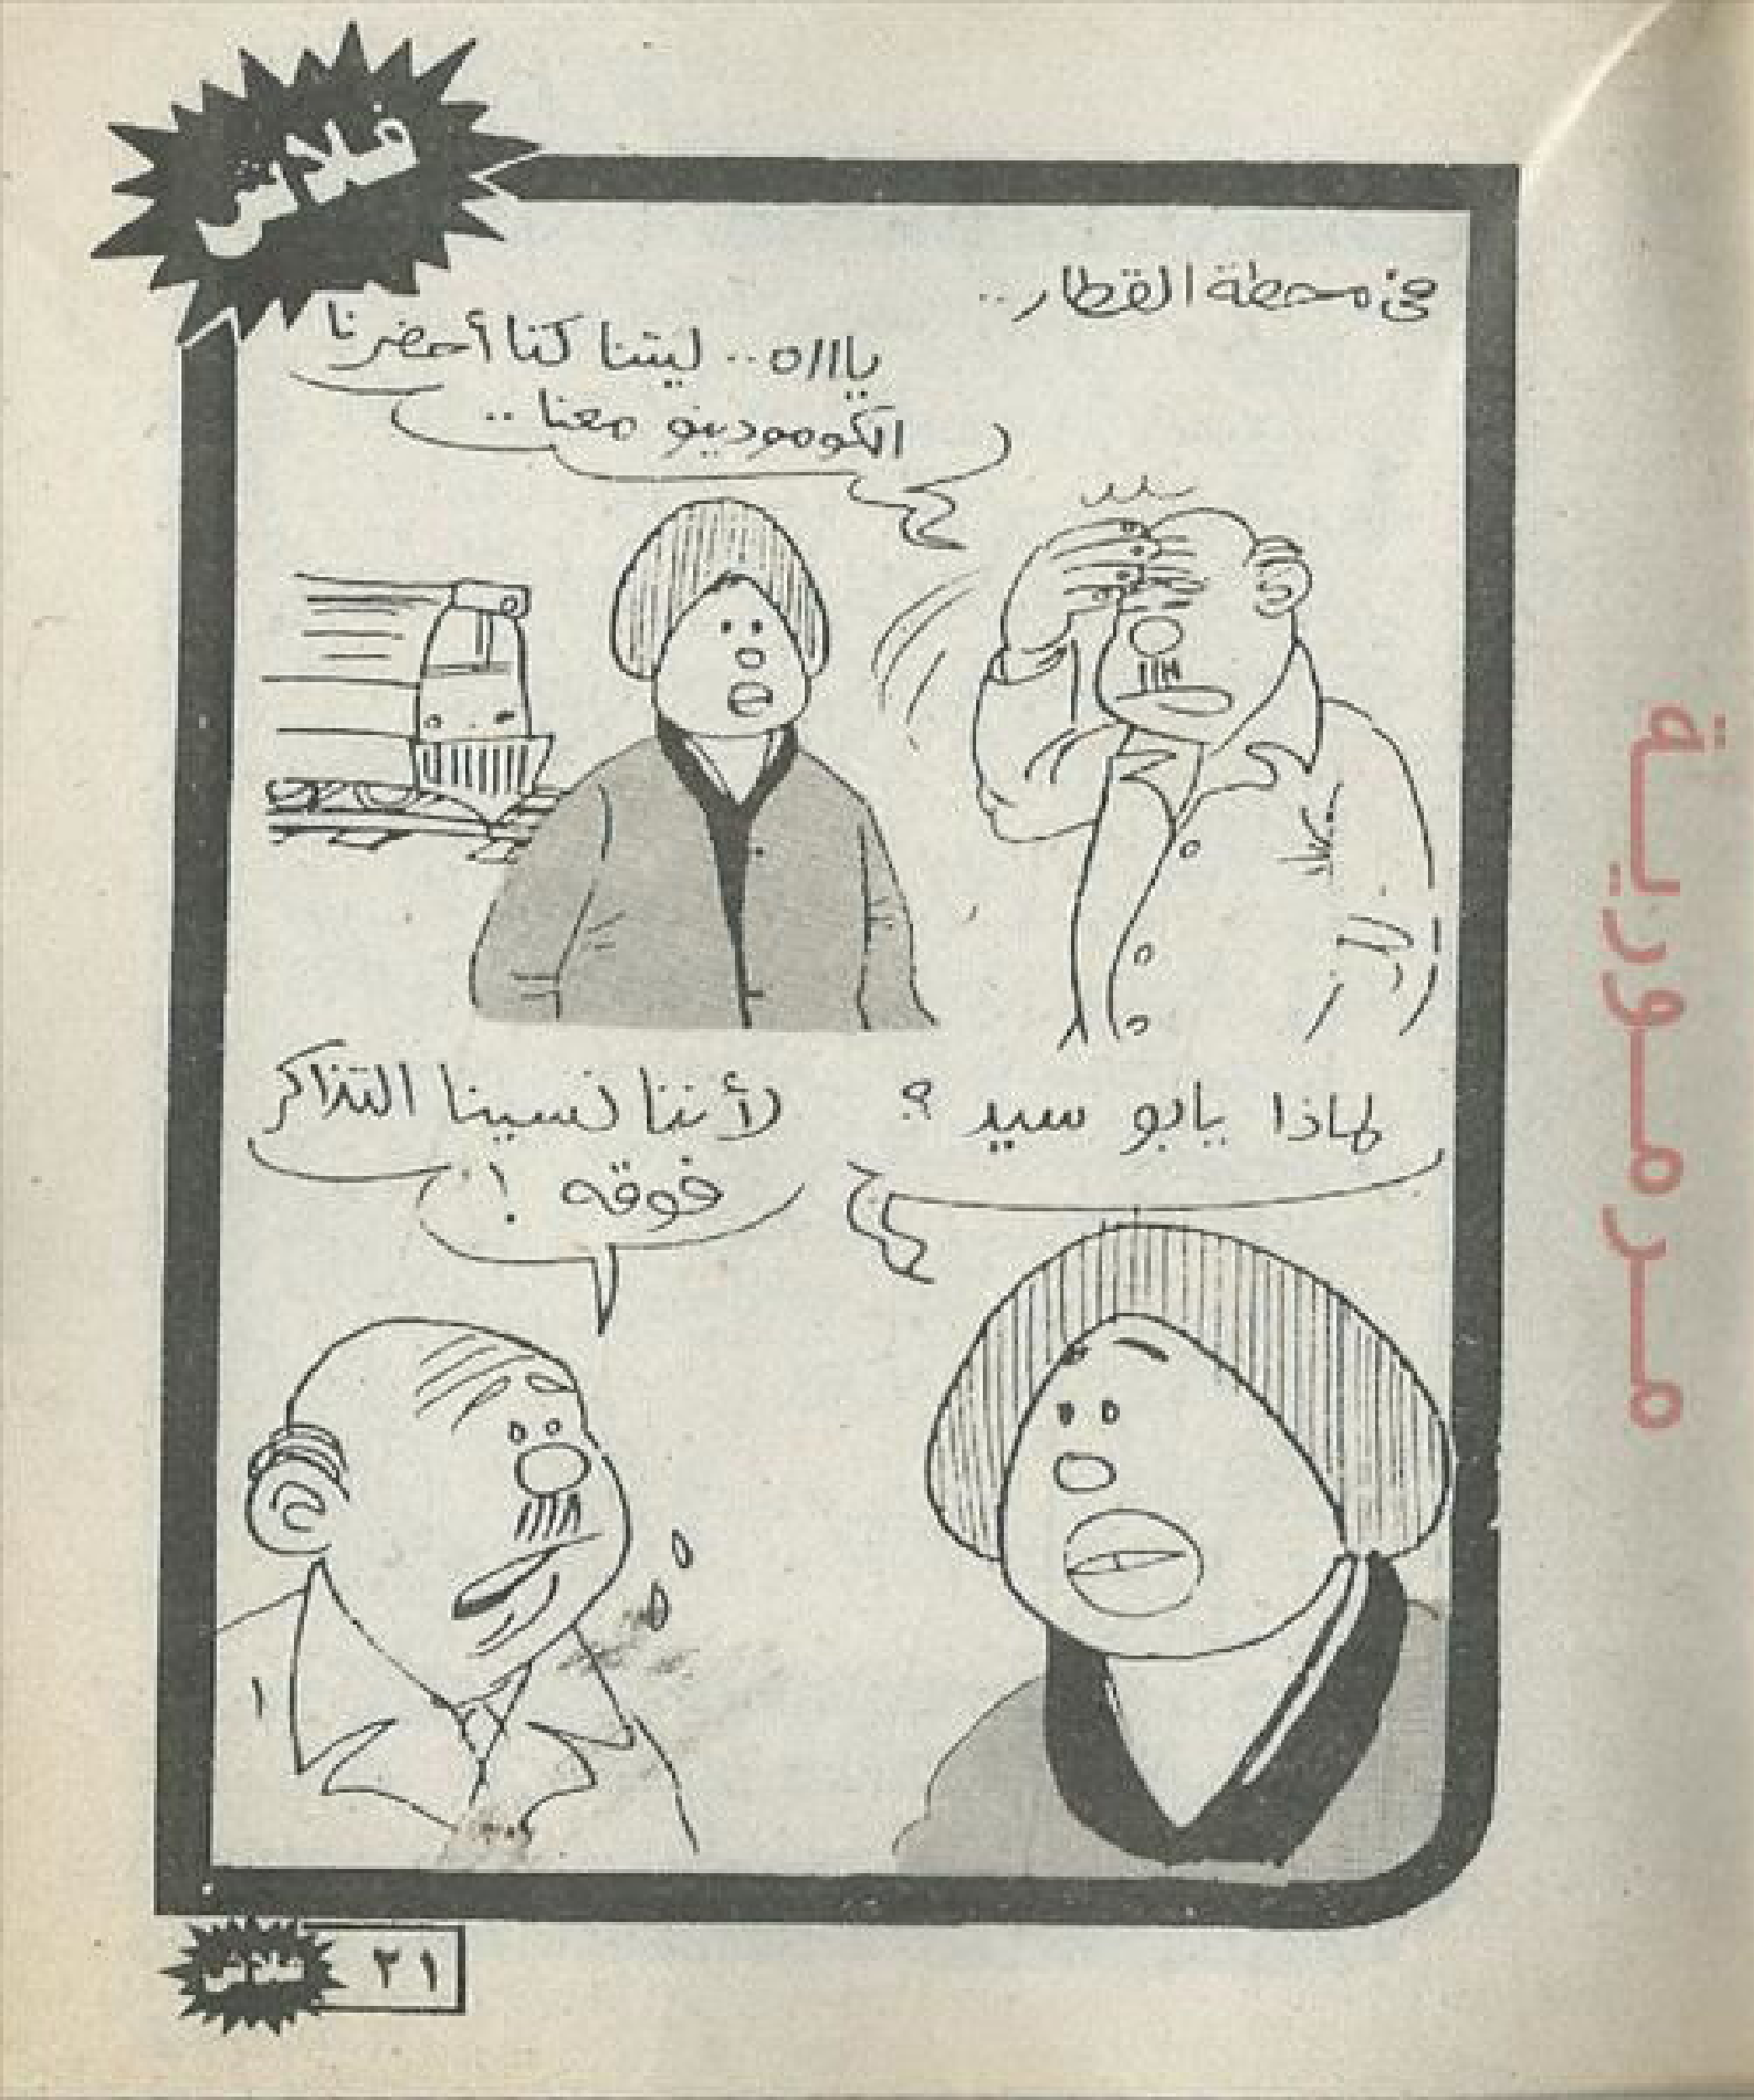 فلاش
فى محطة القطار..
ياااه.. ليتنا كنا أحضرنا
الكومودينو معنا..
لماذا يابو سيد ؟
لأننا نسينا التذاكر
فوقه !
فلاش ٢١
مرمورية